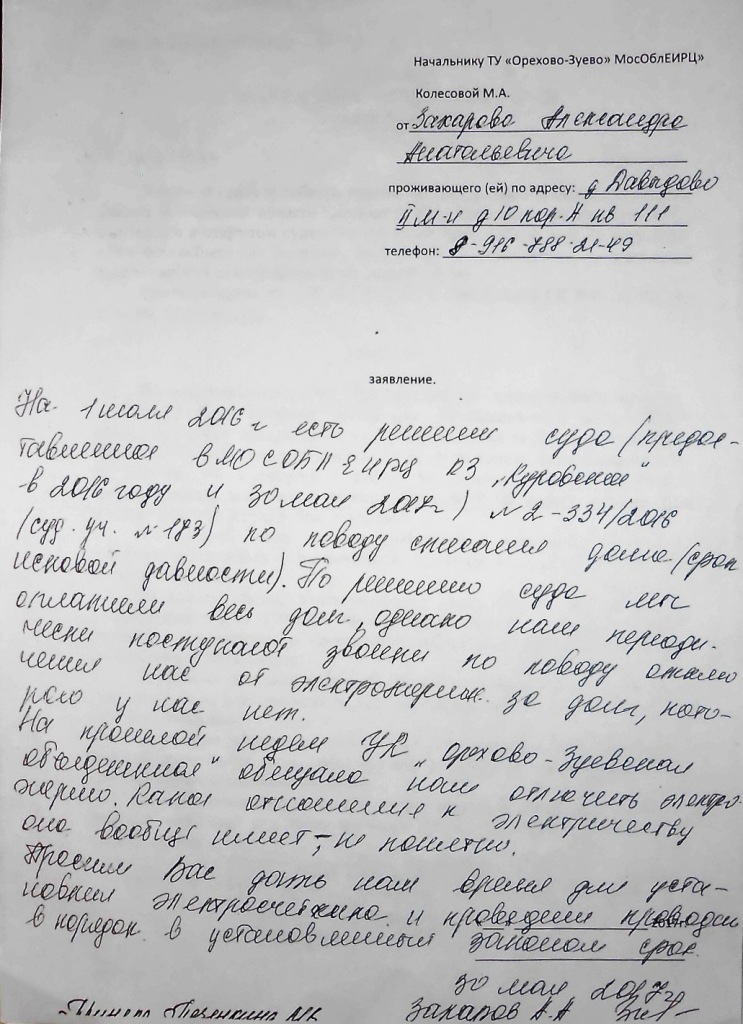 Начальнику ТУ «Орехово-Зуево» МосОблЕИРЦ»
Колесовой М.А.
от Захарова Александра
Анатольевича
проживающего (ей) по адресу: д Давыдово
II м-н д 10 пор. А кв 111
телефон: 8-916-788-21-49
заявление.
На 1 июля 2016 г есть решение суда /предос-
тавленная в МОСОБЛЕИРЦ КЗ „Куровское"
в 2016 году и 30 мая 2017г) №2-334/2016
/суд. уч. №183) по поводу списания долга /срок
исковой давности). По решению суда мы
оплатили весь долг, однако нам периоди-
чески поступают звонки по поводу отклю
чения нас от электроэнергии за долг, кото-
рого у нас нет.
На прошлой неделе УК „Орехово-Зуевская
объединенная" обещало нам отлючить электро-
энергию. Какое отношение к электричеству
она вообще имеет – не понятно.
Просим Вас дать нам время для уста-
новки электросчетчика и проведения проводки
в порядок в установленный законом срок.
30 мая 2017г
Приняла Захаров А.А